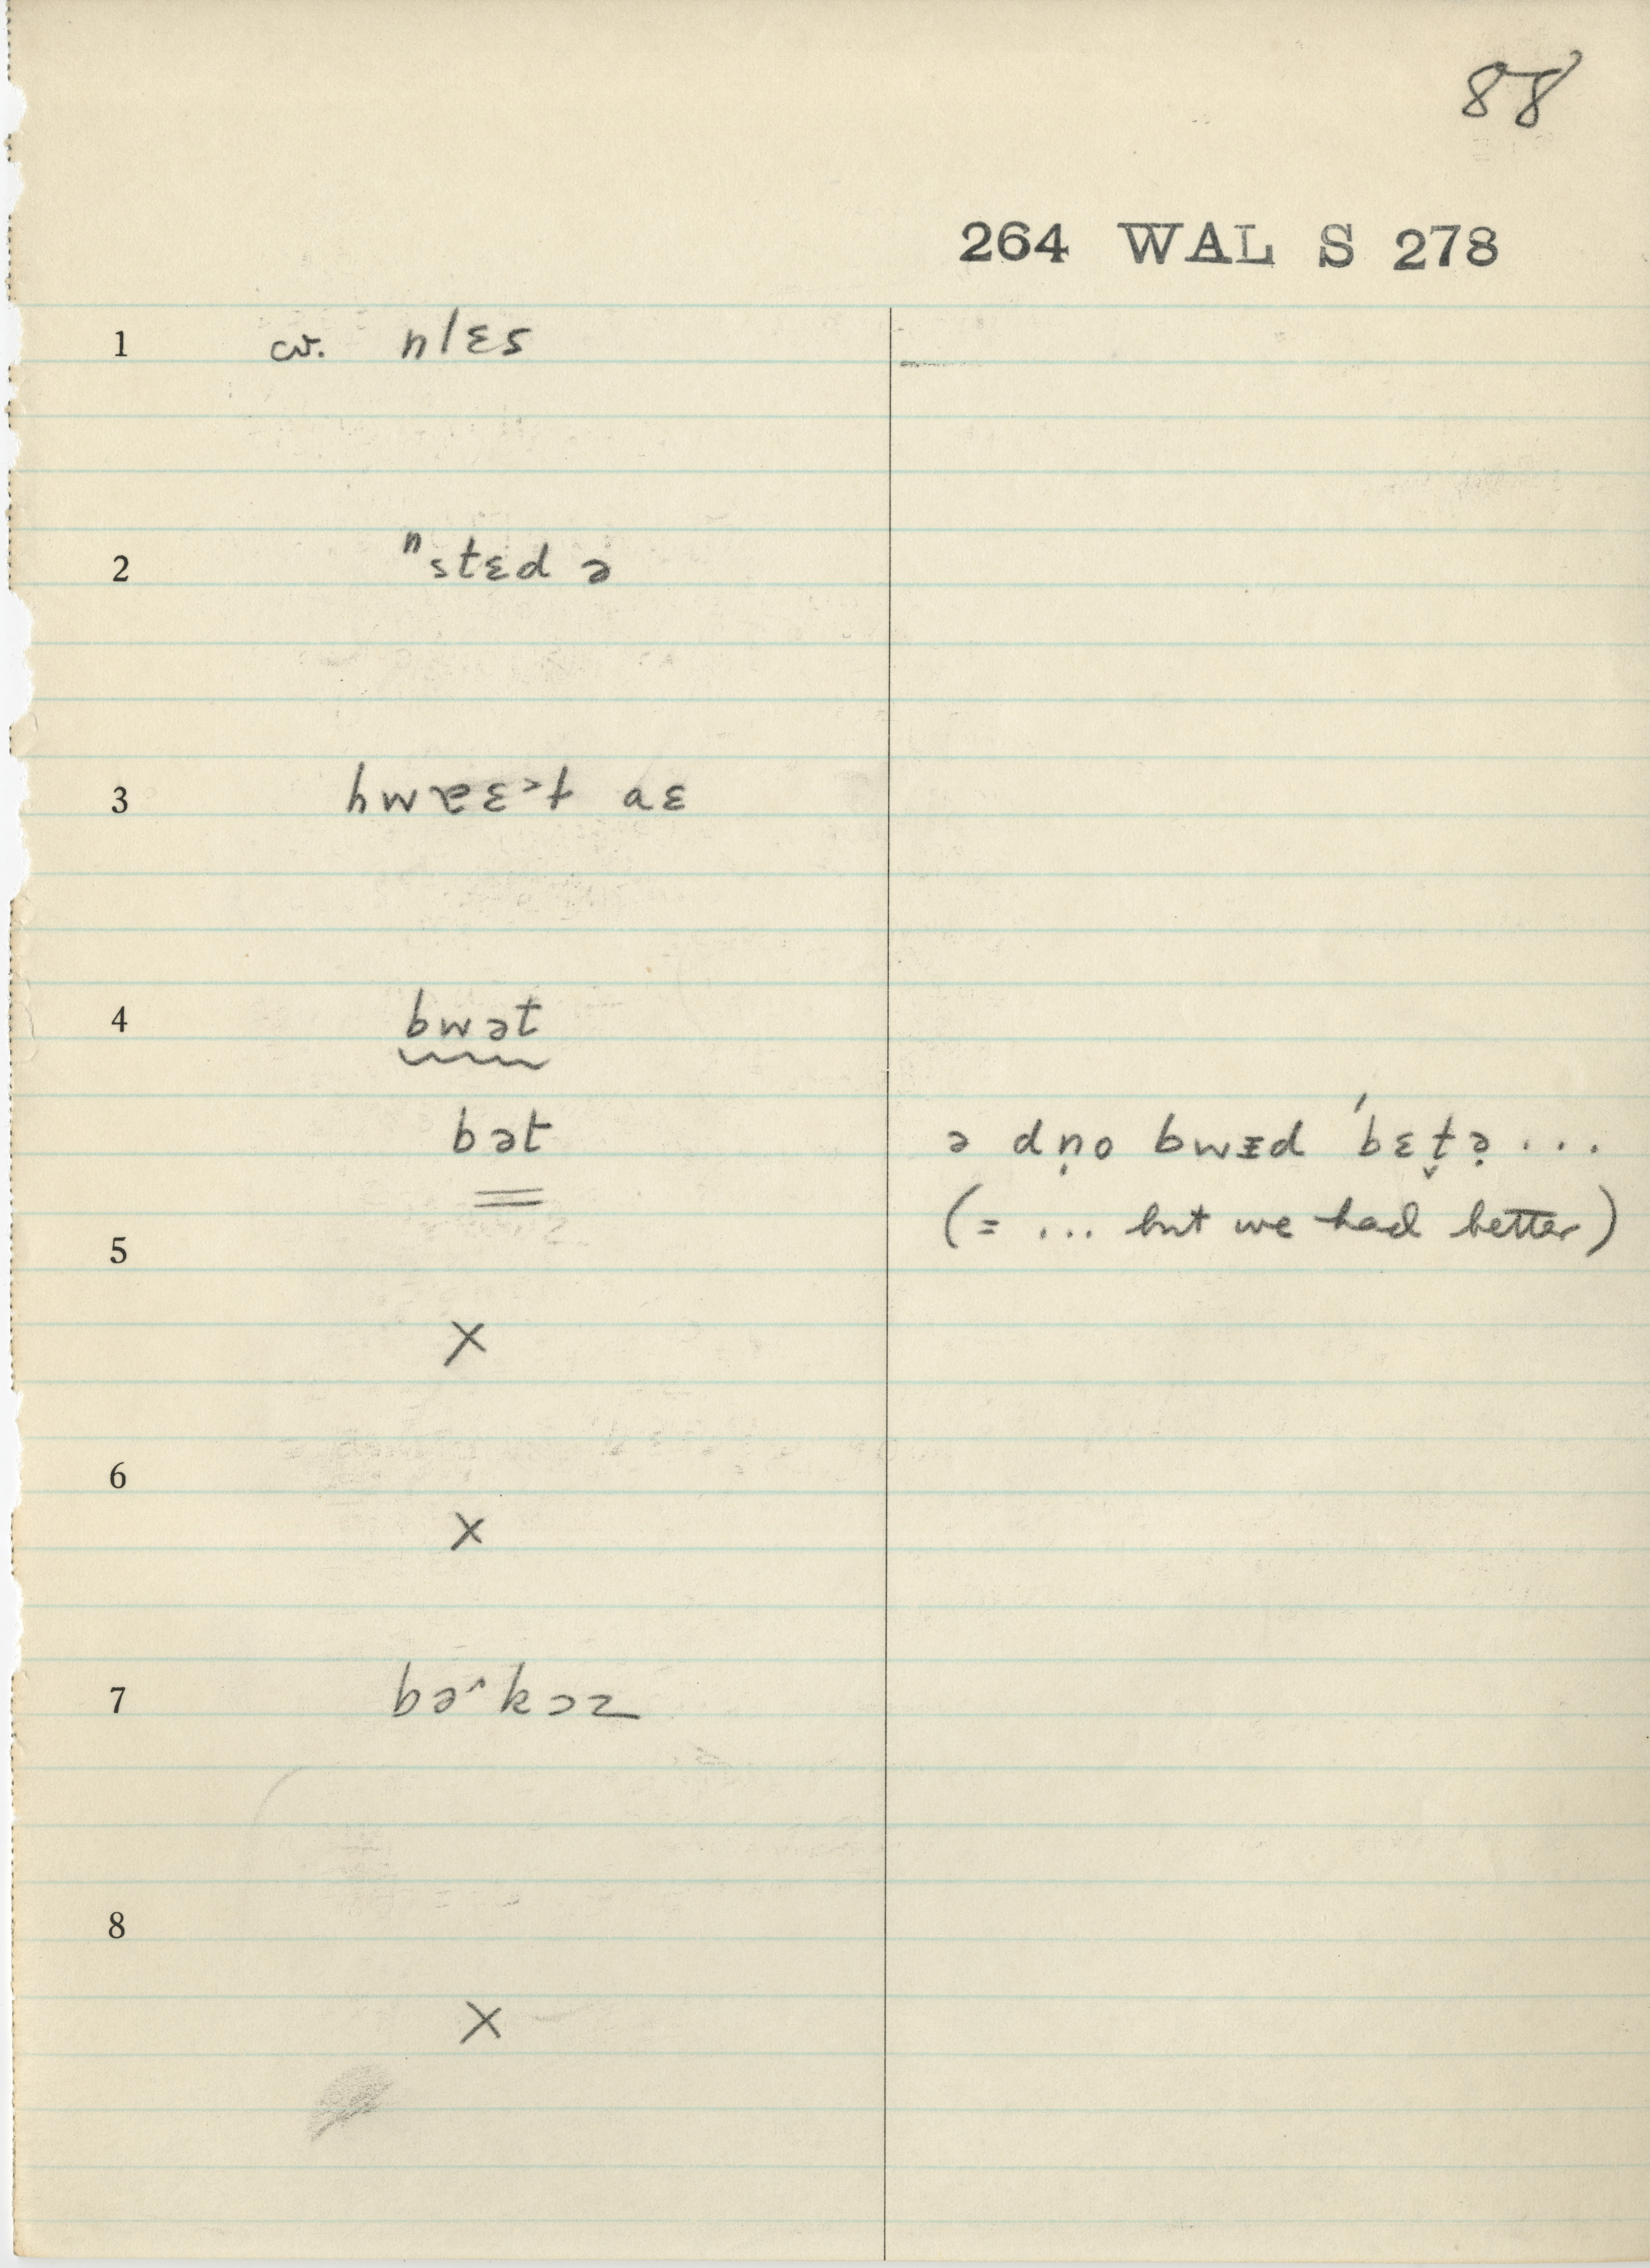 88
264 WAL S 278
1 cv. nlɛs
2 ⁿstɛd ə
3 hwɐɛ˃t aɛ
4 bwət
bət ə dṇo bwɪd ˈbɛt̬ə̣ ...
(= ... but we had better)
5
X
6
X
7 bə˄kɔz
8
X